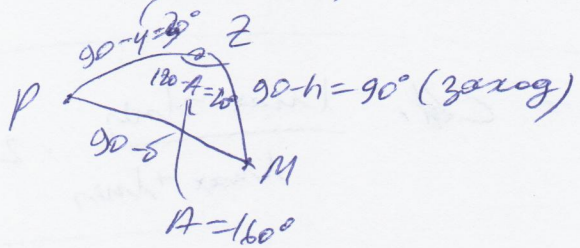 90-φ=20° Z
P 180-A=20° 90-h=90° (заход)
90-δ M
A=160°